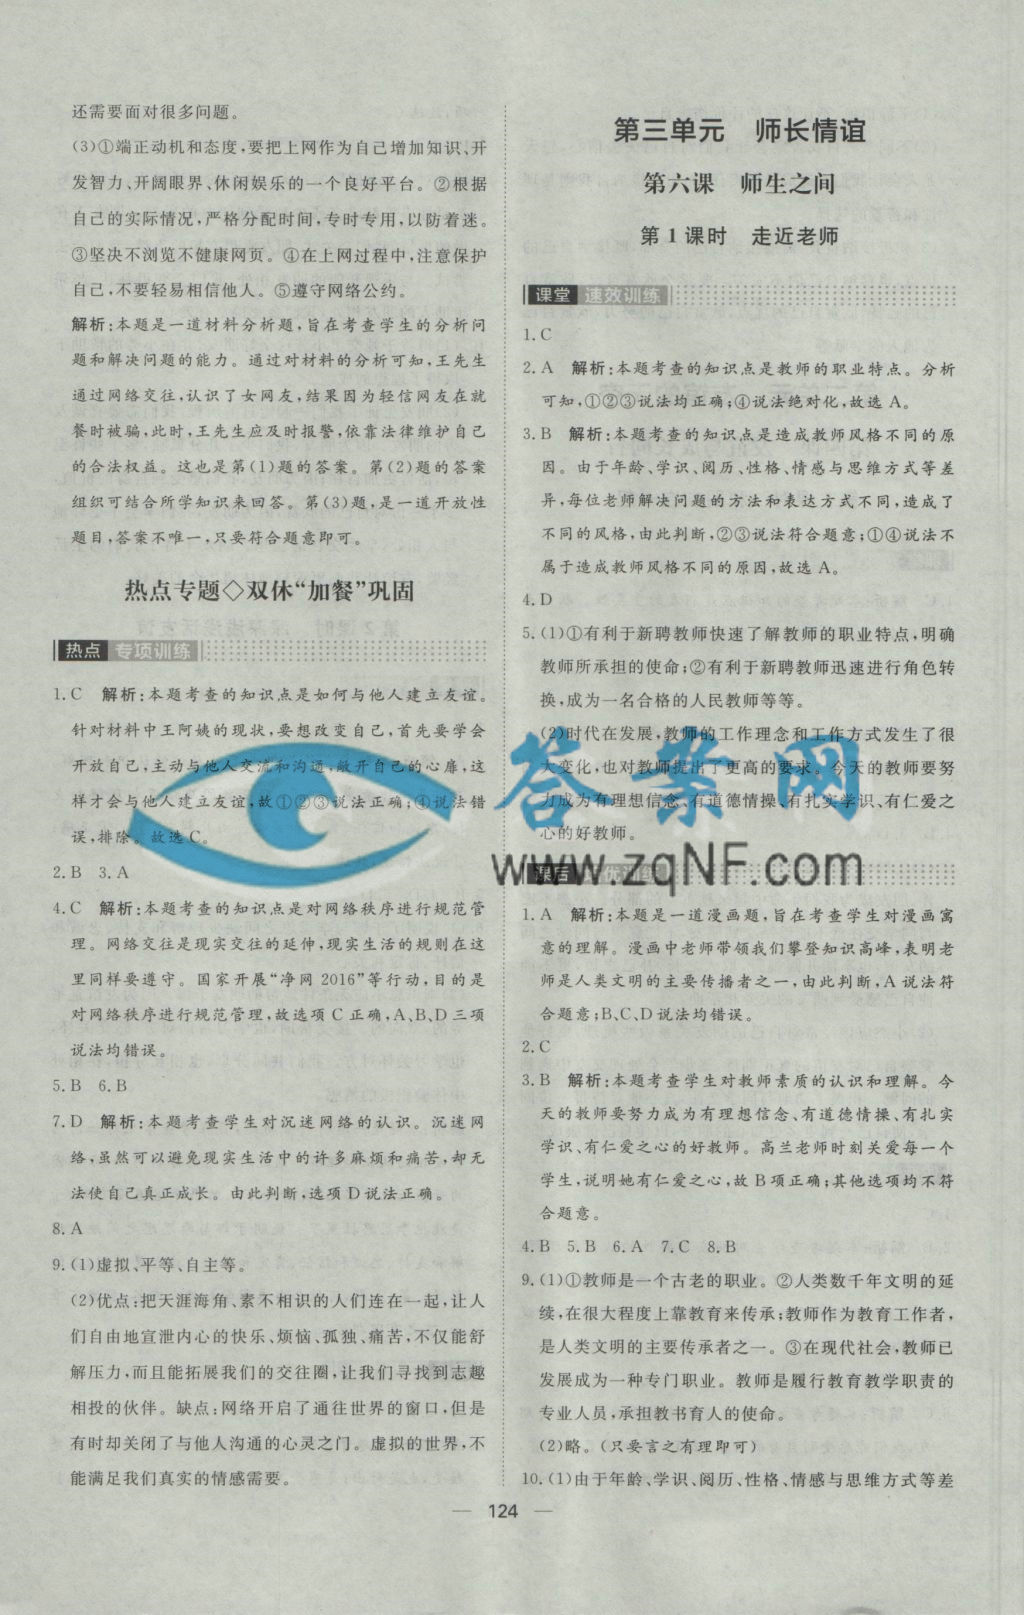 还需要面对很多问题。
(3)①端正动机和态度,要把上网作为自己增加知识、开
发智力、开阔眼界、休闲娱乐的一个良好平台。②根据
自己的实际情况,严格分配时间,专时专用,以防着迷。
③坚决不浏览不健康网页。④在上网过程中,注意保护
自己,不要轻易相信他人。⑤遵守网络公约。
解析:本题是一道材料分析题,旨在考查学生的分析问
题和解决问题的能力。通过对材料的分析可知,王先生
通过网络交往,认识了女网友,结果因为轻信网友在就
餐时被骗,此时,王先生应及时报警,依靠法律维护自己
的合法权益。这也是第(1)题的答案。第(2)题的答案
组织可结合所学知识来回答。第(3)题,是一道开放性
题目,答案不唯一,只要符合题意即可。
热点专题◇双休“加餐”巩固
热点 专项训练
1.C 解析:本题考查的知识点是如何与他人建立友谊。
针对材料中王阿姨的现状,要想改变自己,首先要学会
开放自己,主动与他人交流和沟通,敞开自己的心扉,这
样才会与他人建立友谊,故①②③说法正确;④说法错
误,排除。故选C。
2.B 3.A
4.C 解析:本题考查的知识点是对网络秩序进行规范管
理。网络交往是现实交往的延伸,现实生活的规则在这
里同样要遵守。国家开展“净网2016”等行动,目的是
对网络秩序进行规范管理,故选项C正确,A、B、D三项
说法均错误。
5.B 6.B
7.D 解析:本题考查学生对沉迷网络的认识。沉迷网
络,虽然可以避免现实生活中的许多麻烦和痛苦,却无
法使自己真正成长。由此判断,选项D说法正确。
8.A
9.(1)虚拟、平等、自主等。
(2)优点:把天涯海角、素不相识的人们连在一起,让人
们自由地宣泄内心的快乐、烦恼、孤独、痛苦,不仅能舒
解压力,而且能拓展我们的交往圈,让我们寻找到志趣
相投的伙伴。缺点:网络开启了通往世界的窗口,但是
有时却关闭了与他人沟通的心灵之门。虚拟的世界,不
能满足我们真实的情感需要。
第三单元 师长情谊
第六课 师生之间
第1课时 走近老师
课堂 速效训练
1.C
2.A 解析:本题考查的知识点是教师的职业特点。分析
可知,①②③说法均正确;④说法绝对化,故选A。
3.B 解析:本题考查的知识点是造成教师风格不同的原
因。由于年龄、学识、阅历、性格、情感与思维方式等差
异,每位老师解决问题的方法和表达方式不同,造成了
不同的风格,由此判断,②③说法符合题意;①④说法不
属于造成教师风格不同的原因,故选A。
4.D
5.(1)①有利于新聘教师快速了解教师的职业特点,明确
教师所承担的使命;②有利于新聘教师迅速进行角色转
换,成为一名合格的人民教师等等。
(2)时代在发展,教师的工作理念和工作方式发生了很
大变化,也对教师提出了更高的要求。今天的教师要努
力成为有理想信念、有道德情操、有扎实学识、有仁爱之
心的好教师。
答案网
www.zqNF.com
课后
1.A 解析:本题是一道漫画题,旨在考查学生对漫画寓
意的理解。漫画中老师带领我们攀登知识高峰,表明老
师是人类文明的主要传播者之一,由此判断,A说法符
合题意;B、C、D说法均错误。
2.C
3.B 解析:本题考查学生对教师素质的认识和理解。今
天的教师要努力成为有理想信念、有道德情操、有扎实
学识、有仁爱之心的好教师。高兰老师时刻关爱每一个
学生,说明她有仁爱之心,故B项正确;其他选项均不符
合题意。
4.B 5.B 6.A 7.C 8.B
9.(1)①教师是一个古老的职业。②人类数千年文明的延
续,在很大程度上靠教育来传承;教师作为教育工作者,
是人类文明的主要传承者之一。③在现代社会,教师已
发展成为一种专门职业。教师是履行教育教学职责的
专业人员,承担教书育人的使命。
(2)略。(只要言之有理即可)
10.(1)由于年龄、学识、阅历、性格、情感与思维方式等差
— 124 —